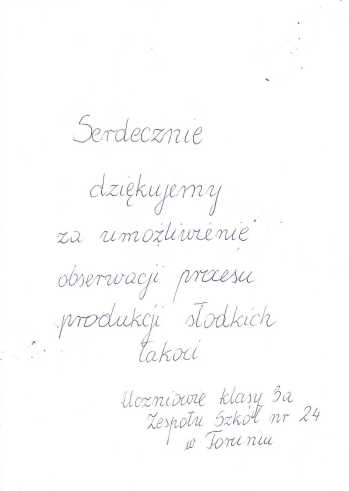 Serdecznie
dziękujemy
za umożliwienie
obserwacji procesu
produkcji słodkich
łakoci
Uczniowie klasy 3a
Zespołu Szkół nr 24
w Toruniu